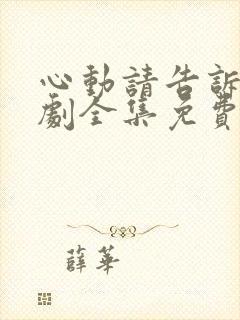 心動請告訴
劇全集免費
薛華